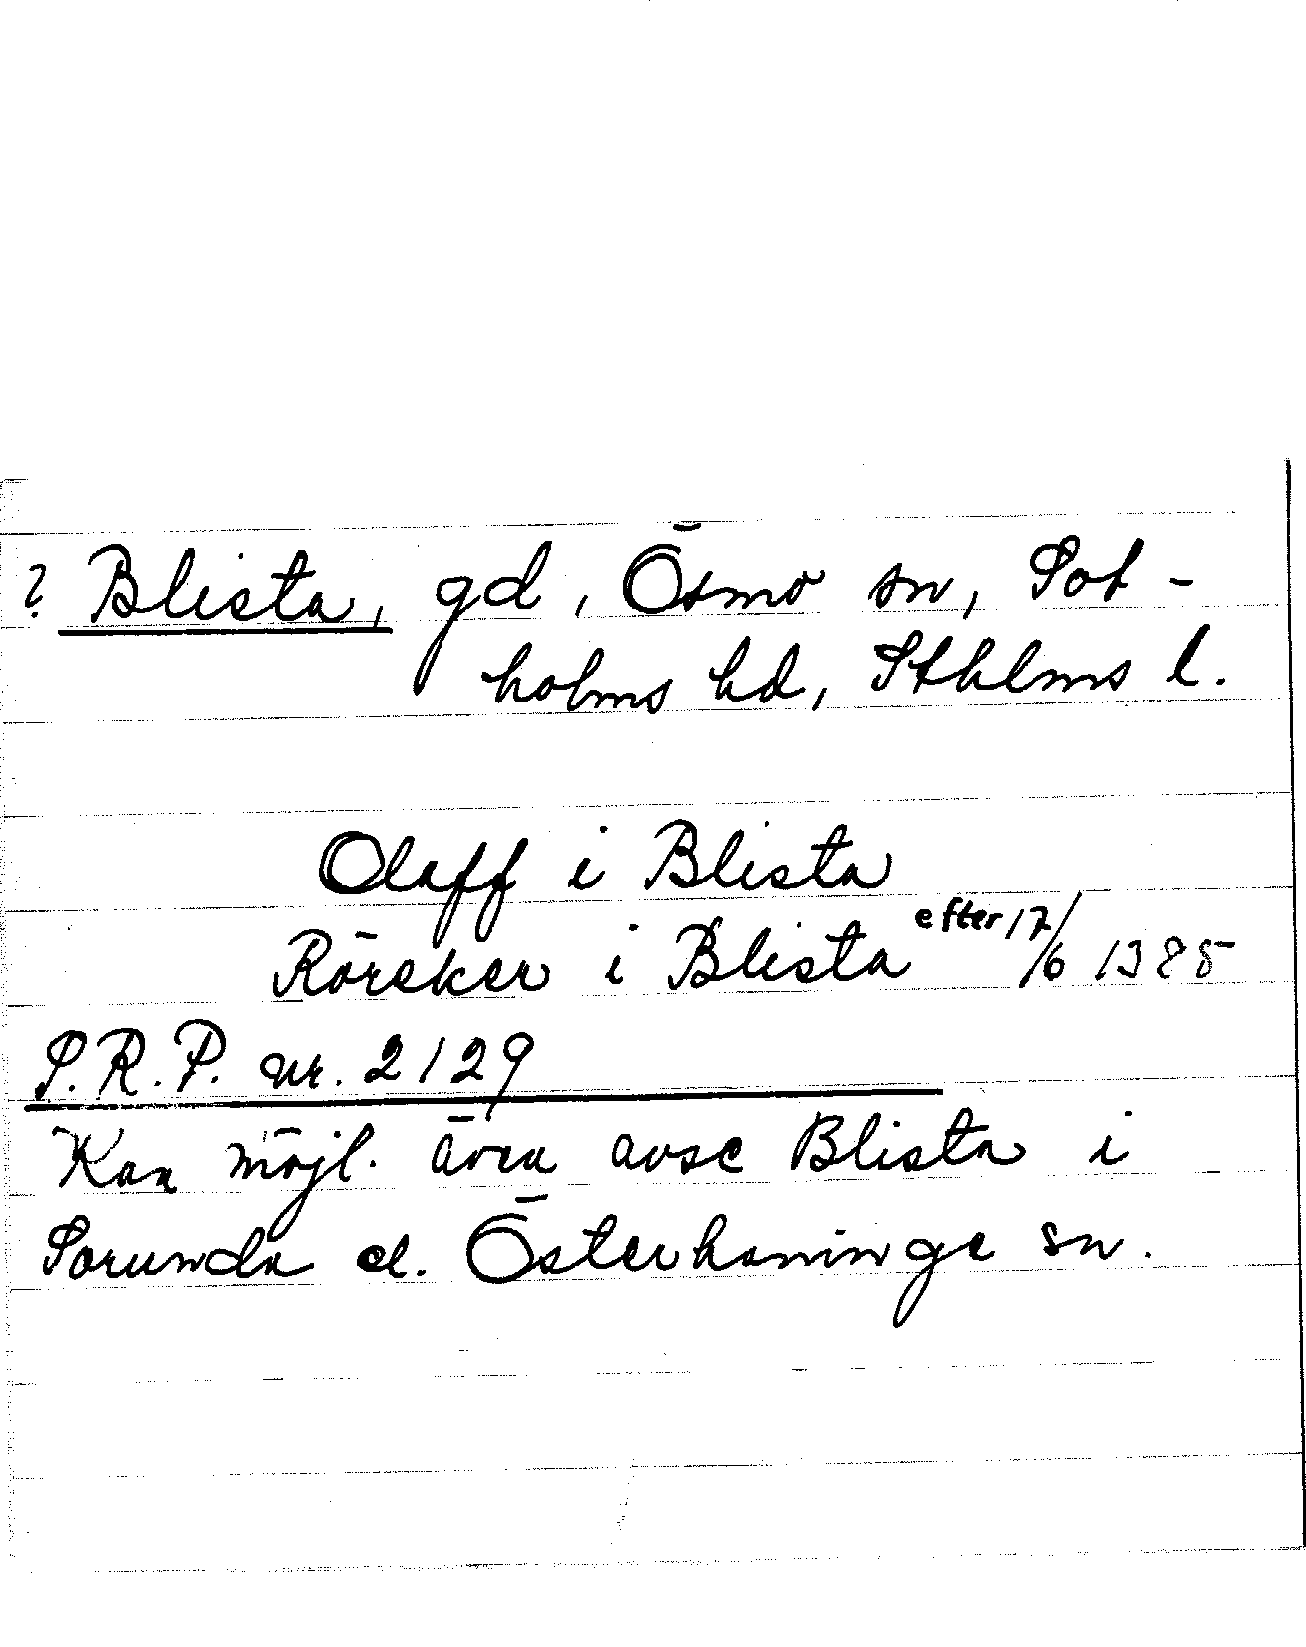 ? Blista, gd, Ösmo sn, Sot-
holms hd, Sthlms l.
Olaff i Blista
Röreker i Blista efter 17/6 1385
S.R.P. nr. 2129
Kan möjl. även avse Blista i
Sorunda el. Österhaninge sn.